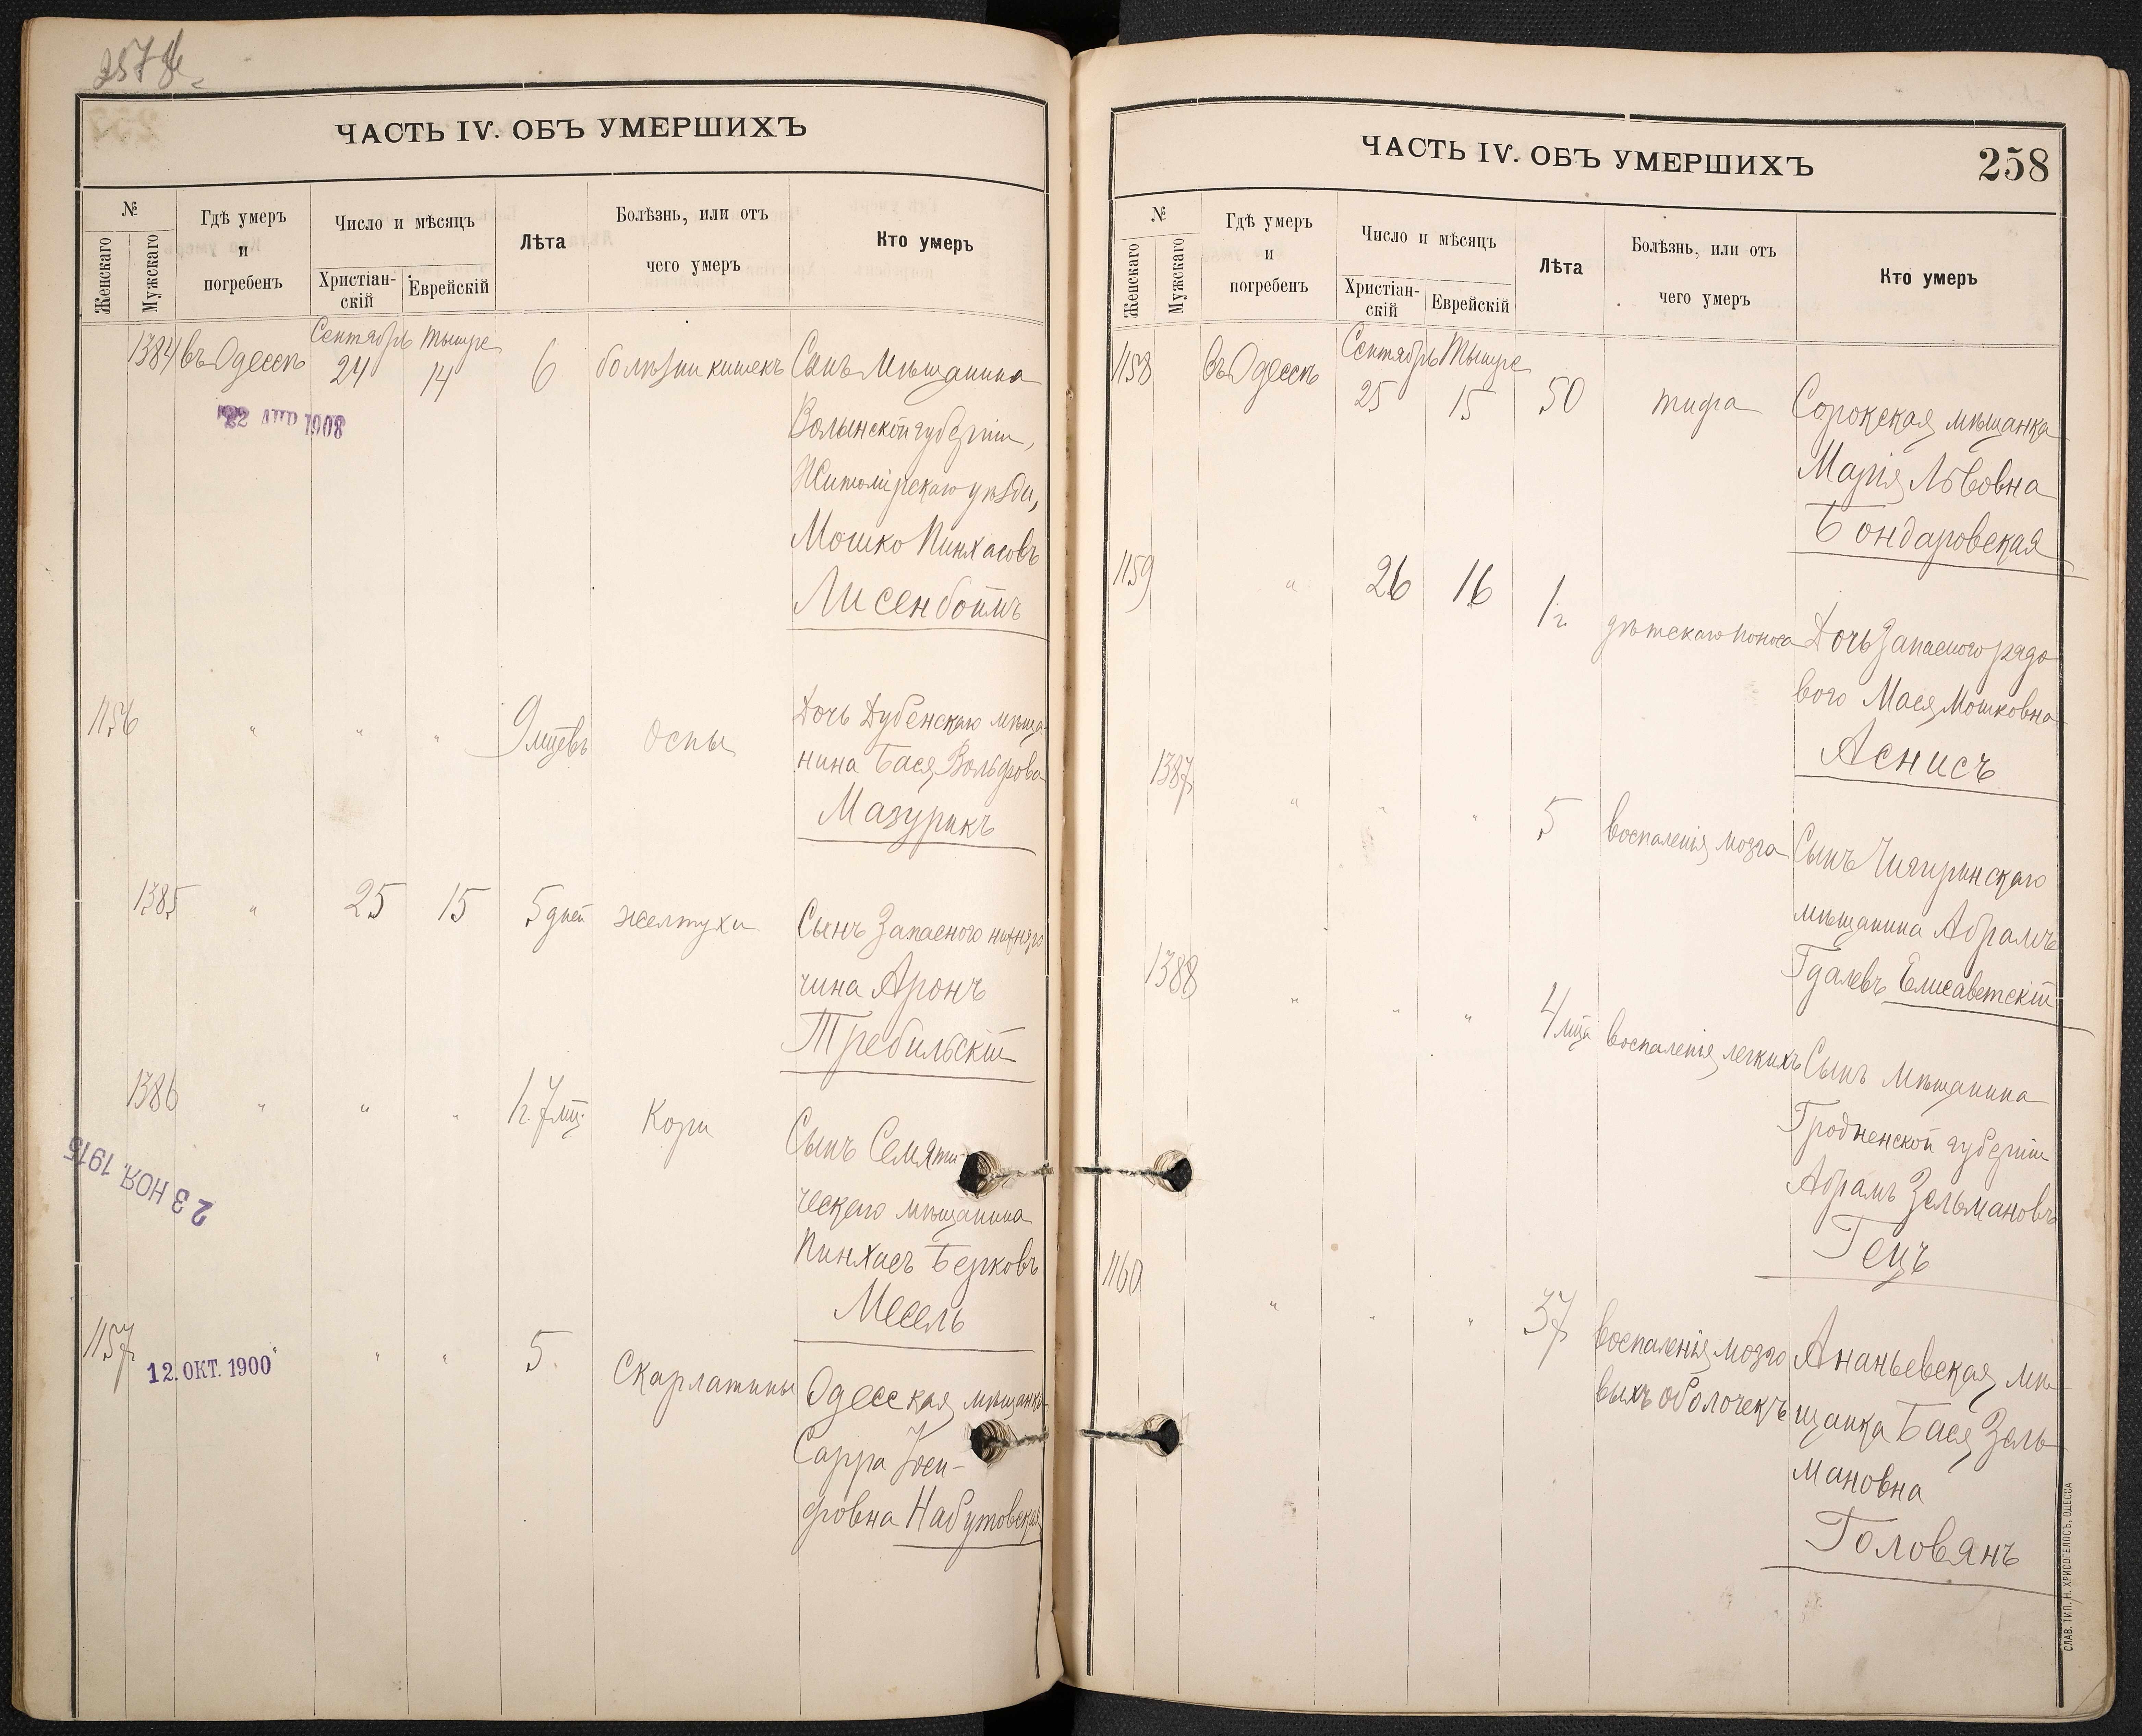 ЧАСТЬ IV. ОБЪ УМЕРШИХЪ
№
Женскаго
Мужскаго
Гдѣ умеръ
и
погребенъ
Число и мѣсяцъ
Христіан-
скій
Еврейскій
Лѣта
Болѣзнь, или отъ
чего умеръ
Кто умеръ
Сентябрь Тышре
1384 въ Одессѣ 24 14 6 болѣзни кишекъ Сынъ Мѣщанина
22 АПР 1908
Волынской губерніи,
Житомірскаго уѣзда,
Мошко Пинхасовъ
Лисенбоймъ
1156 " " " 9 мцевъ Оспы Дочь Дубенскаго мѣща-
нина Бася Вольфова
Мазурикъ
1385 " 25 15 5 дней желтухи Сынъ Запасного нижняго
чина Аронъ
Требильскій
1386 " " " 1 г. 7 мц. Кори Сынъ Семяти-
23 НОЯ. 1915
ческаго мѣщанина
Пинхасъ Берковъ
Месель
1157 " " " 5 Скарлатины Одесская мѣщанка
12. ОКТ. 1900
Сарра Іоси-
фовна Набутовская
ЧАСТЬ IV. ОБЪ УМЕРШИХЪ
258
№
Женскаго
Мужскаго
Гдѣ умеръ
и
погребенъ
Число и мѣсяцъ
Христіан-
скій
Еврейскій
Лѣта
Болѣзнь, или отъ
чего умеръ
Кто умеръ
Сентябрь Тышре
1158 въ Одессѣ 25 15 50 тифа Сорокская мѣщанка
Марія Львовна
Бондаровская
1159 " 26 16 1 г. дѣтскаго поноса Дочь Запасного рядо
вого Мася Мошковна
Аснисъ
1387 " " " 5 воспаленія мозга Сынъ Чигиринскаго
мѣщанина Абрамъ
Гдалевъ Елисаветскій
1388 " " " 4 мца воспаленія легкихъ Сынъ Мѣщанина
Гродненской губерніи
Абрамъ Зельмановъ
Гецъ
1160 " " " 37 воспаленія мозго Ананьевская мѣ
выхъ оболочекъ щанка Бася Зель
мановна
Головянъ
СЛАВ. ТИП. Н. ХРИСОГЕЛОСЪ, ОДЕССА